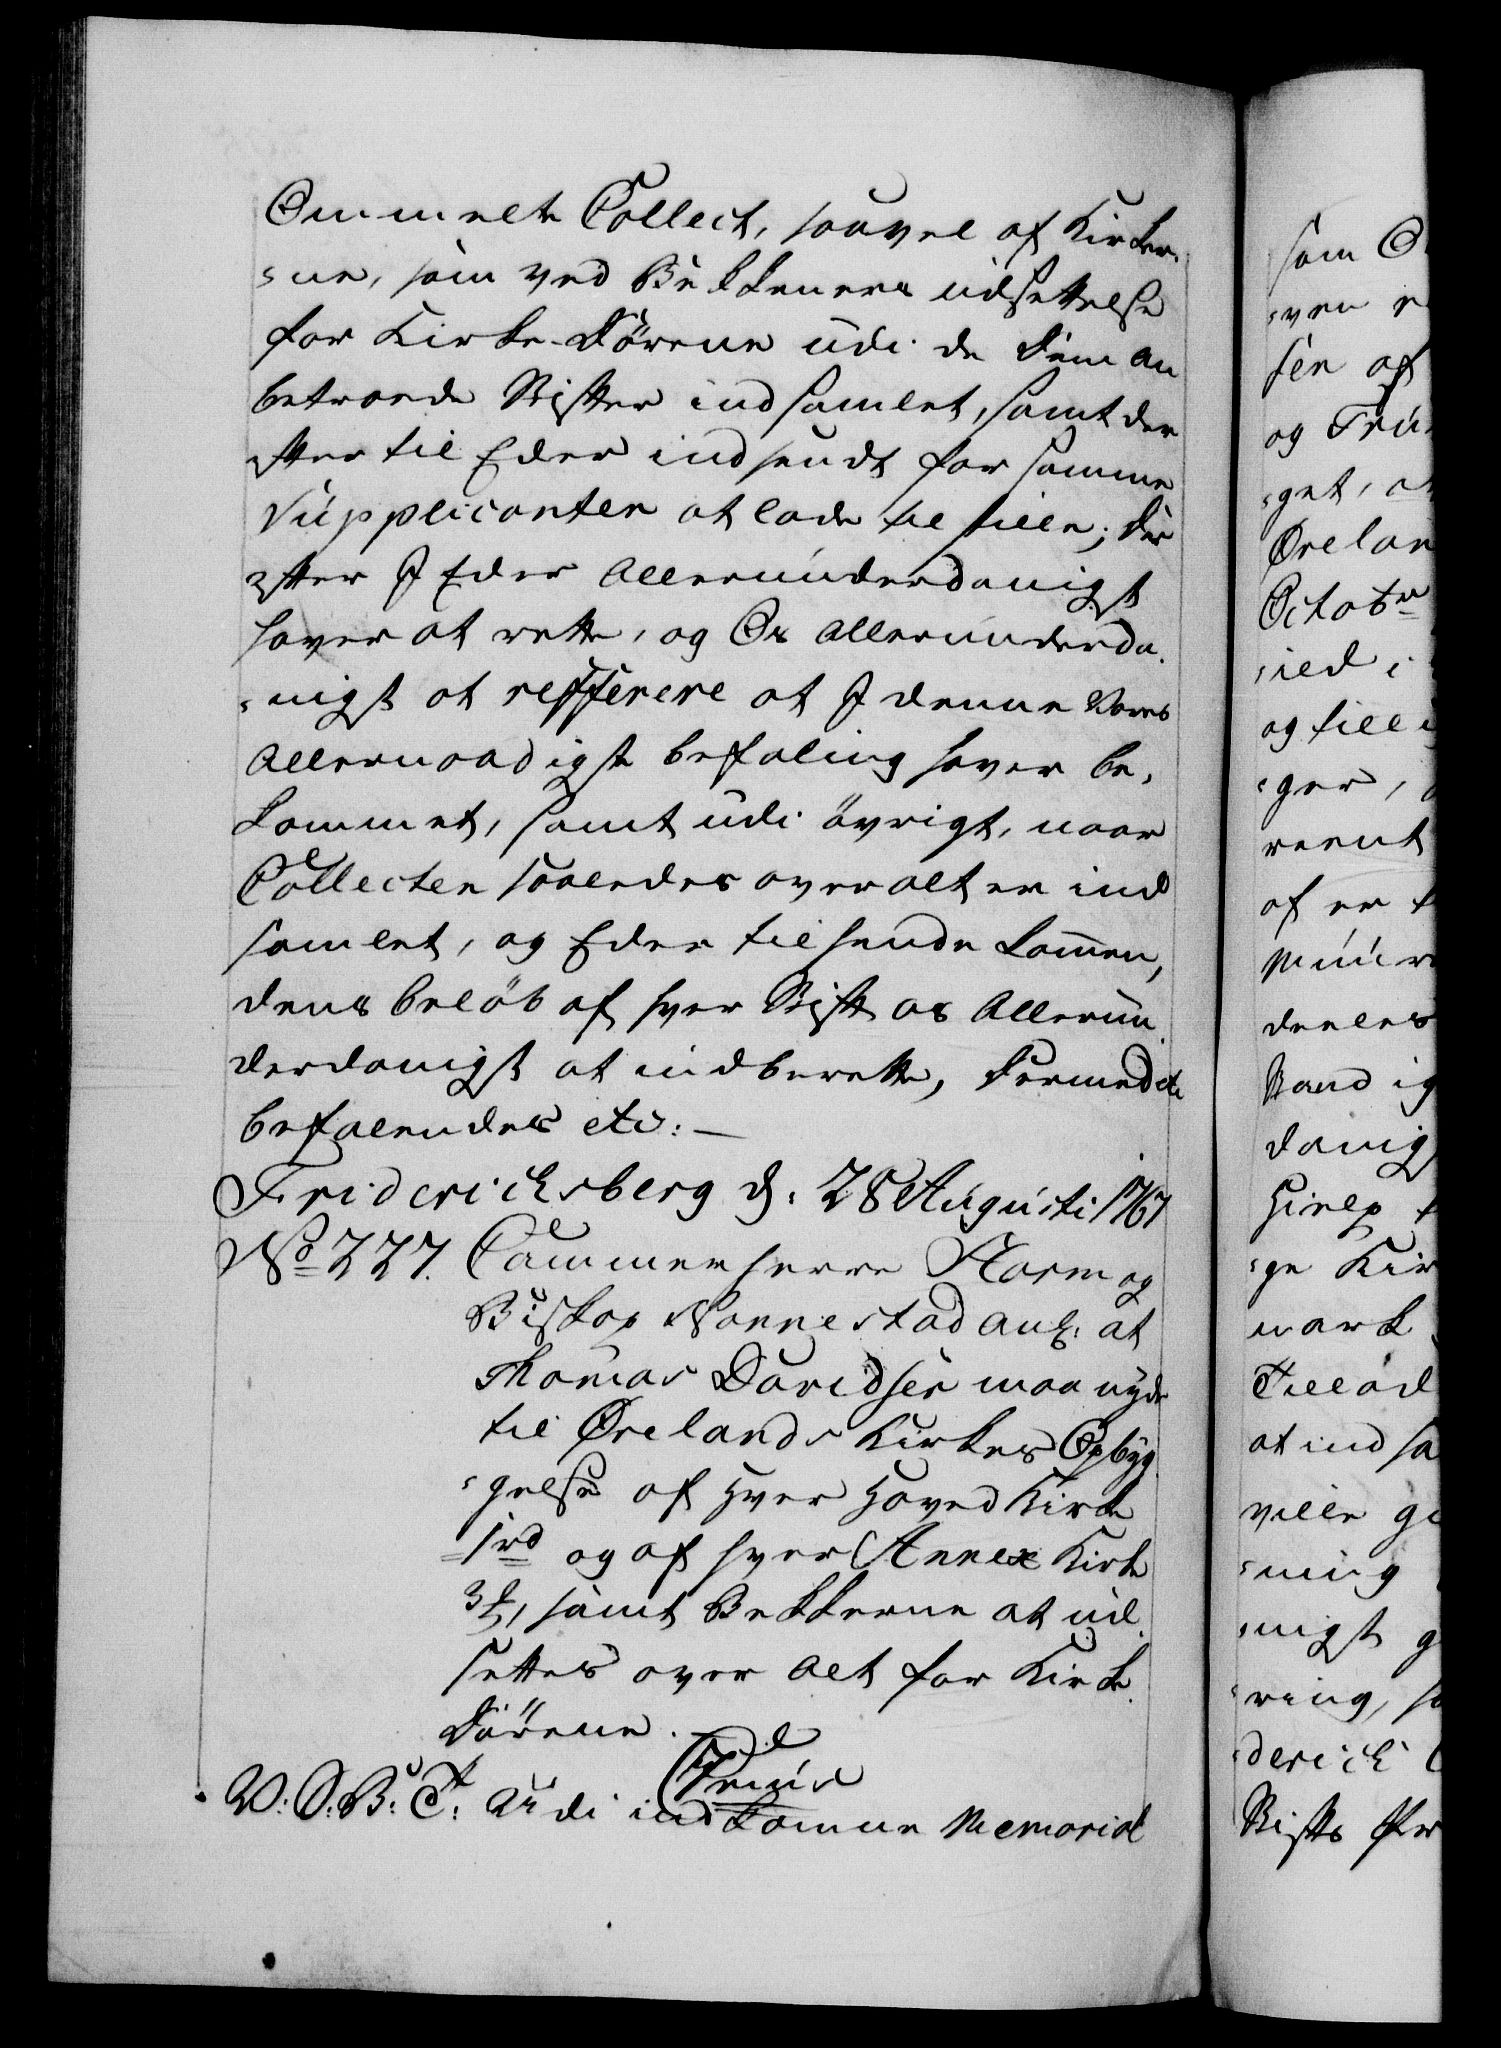 Ommelte Collect, saavel af Kirker-
-ne, som ved Bekkeners udsettelse
for Kirke-Dörene udi de Dem an
betroede Stifter indsamlet, samt der
efter til Eder indsendt for samme
Suppplicanten at lade tilstille; Der
efter I Eder Allerunderdanigst
haver at rette, og Os Allerunderda-
-nigst at refferere at I denne Vores
Allernaadigste befaling haver be-
kommet, samt udi övrigt, naar
Collecten saaledes overalt er ind
samlet, og Eder tilhende kommen,
dens belöb af hver Stift os Allerun-
derdanigst at indberette, Dermed etc
befalendes etc: —
Friderichsberg d: 28 Augusti 1767
No 227. Cammerherre Storm og
Biskop Nannestad anl: at
Thomas Davidsen maa nyde
til Ørelands Kirkes Opbyg-
-gelse af hver Hoved Kirke
1rd og af hver Annex Kirke
3 ₰, samt Bekkerne at ud-
settes over alt for Kirke-
Dörene.
V: S: B: T: Vi udi indkomne Memorial
som O
-ven
sen af
og Trü
-get, a
Ørelan
Octobr
-ied i
og till
-ger,
reent
af er
Muur
deeles
Stand ig
danig
Hielp
-ge Kir
mark
Tillad
at indsa
ville g
-ning
-nigst g
-ring, s
-derich
Stifts